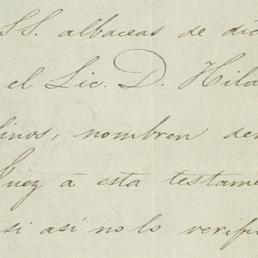 SS. albaceas de dic
el Lic. D. Hila
linos, nombren den
Juez á esta testame
si así no lo verifi